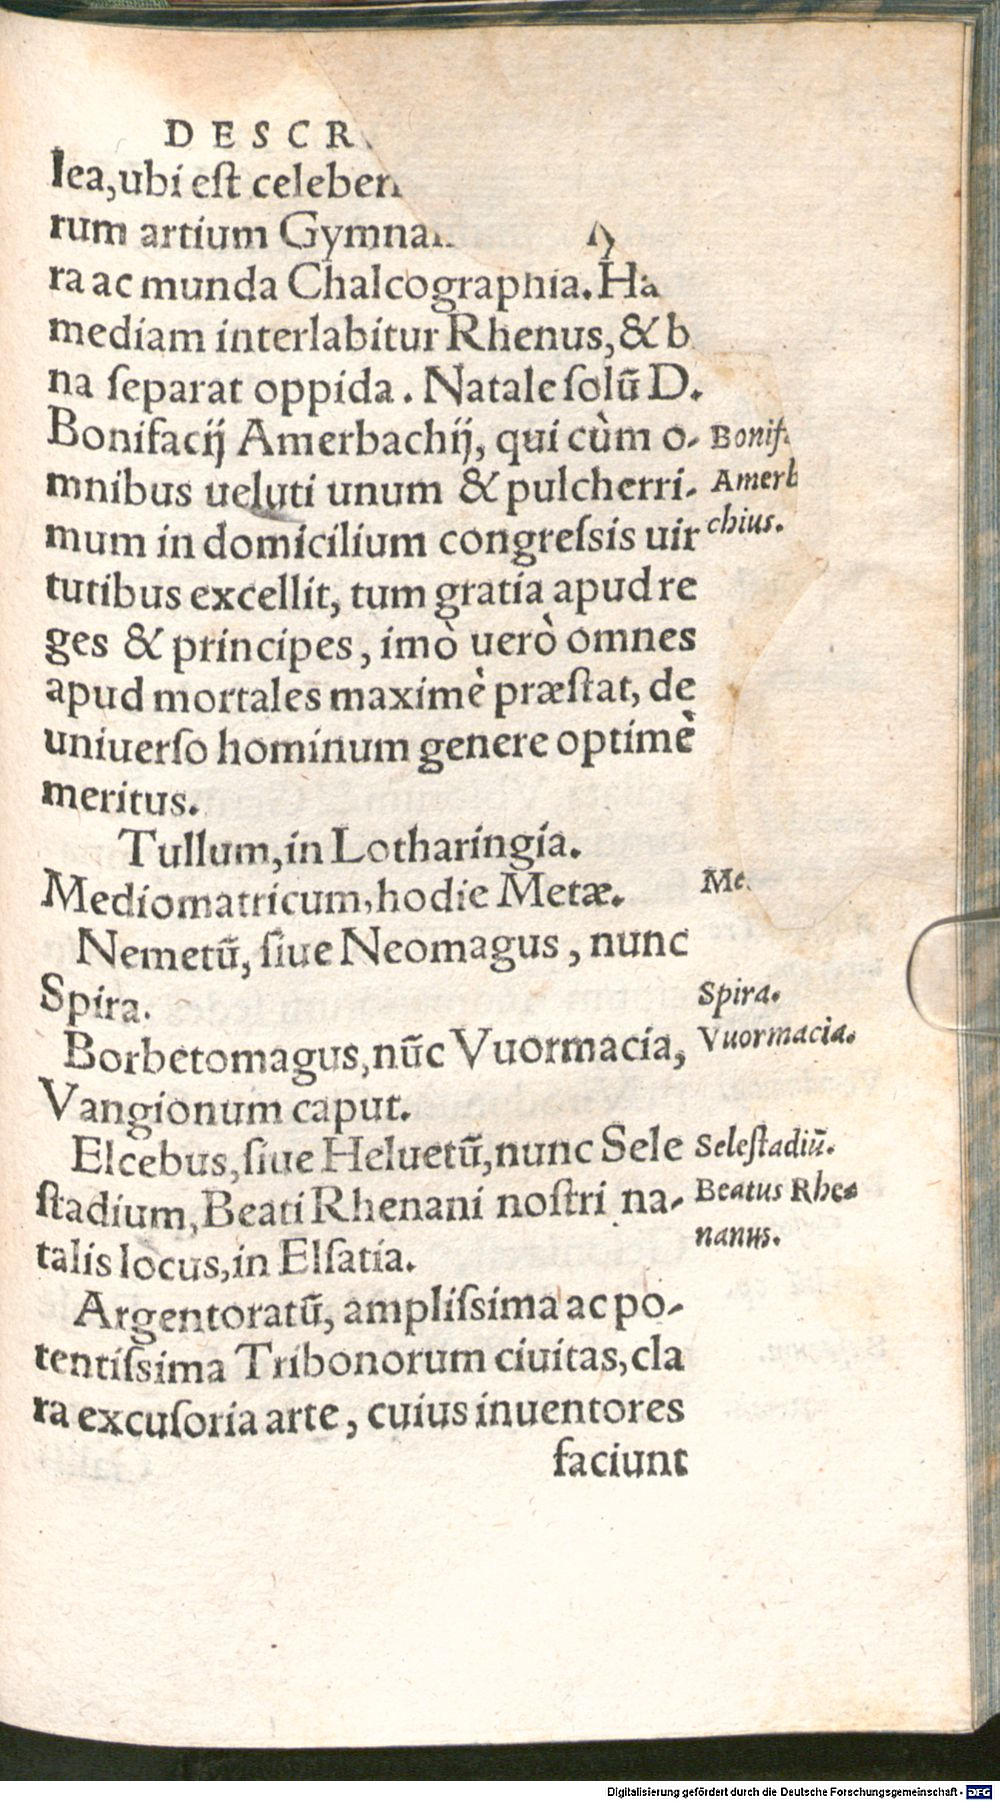 DESCR
lea,ubi est celeber
rum artium Gymna
ra ac munda Chalcographia. Ha
mediam interlabitur Rhenus, & b
na separat oppida. Natale solū D.
Bonifacij Amerbachij, qui cùm o-
Bonif.
mnibus ueluti unum & pulcherri-
Amerb
mum in domicilium congressis uir
chius.
tutibus excellit, tum gratia apud re
ges & principes, imò uerò omnes
apud mortales maximè præstat, de
uniuerso hominum genere optimè
meritus.
Tullum, in Lotharingia.
Mediomatricum, hodie Metæ.
Me
Nemetū, siue Neomagus, nunc
Spira.
Spira.
Borbetomagus, nūc Vuormacia,
Vuormacia.
Vangionum caput.
Elcebus, siue Heluetū, nunc Sele
Selestadiū.
stadium, Beati Rhenani nostri na-
Beatus Rhe-
nanus.
talis locus, in Elsatia.
Argentoratū, amplissima ac po-
tentissima Tribonorum ciuitas, cla
ra excusoria arte, cuius inuentores
faciunt
Digitalisierung gefördert durch die Deutsche Forschungsgemeinschaft - DFG